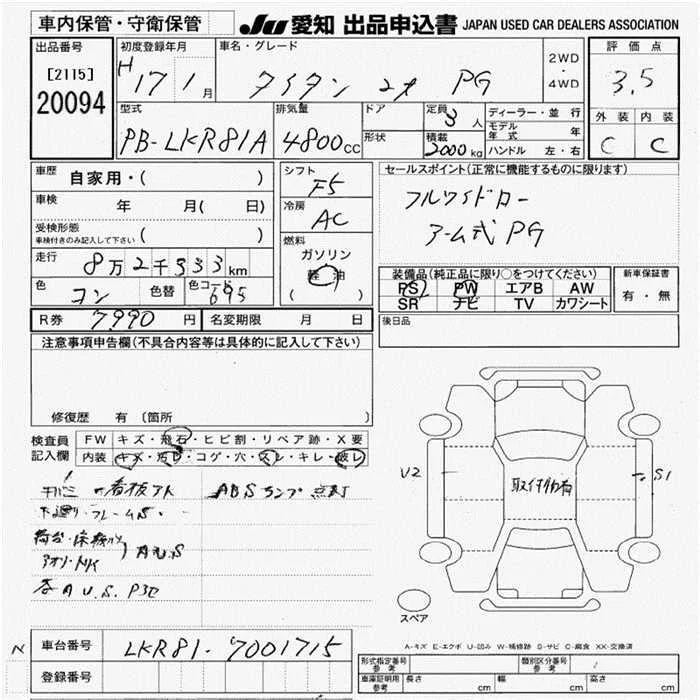 車内保管・守衛保管 JU 愛知 出品申込書 JAPAN USED CAR DEALERS ASSOCIATION
出品番号 初度登録年月 車名・グレード 2WD・4WD 評価点
[2115] H 17 1月 タイタン 2t PG 3.5
20094
型式 排気量 ドア 定員 3人 ディーラー・並行 外装 内装
PB-LKR81A 4800cc 形状 積載 2000kg モデル年式 年 C C
ハンドル 左・右
車歴 自家用・( ) シフト F5 セールスポイント(正常に機能するものに限ります)
車検 年 月( 日) 冷房 AC フルワイドロー
受検形態 車検付きのみ記入して下さい ( ) アーム式PG
走行 8万2千333km 燃料 ガソリン 軽油 ( )
装備品(純正品に限り○をつけてください) 新車保証書
色 コン 色替 色コード 695 PS PW エアB AW 有・無
SR ナビ TV カワシート
R券 7,990円 名変期限 月 日 後日品
注意事項申告欄(不具合内容等は具体的に記入して下さい)
修復歴 有 〔箇所 〕
検査員記入欄 FW キズ・飛石・ヒビ割・リペア跡・X要
内装 キズ・汚レ・コゲ・穴・スレ・キレ・破レ
看板アト ABSランプ点灯
下廻り・フレームS・
U2 取付物有 S1
各AU.S.
スペア
A-キズ E-エクボ U-凹み W-補修跡 S-サビ C-腐食 XX-交換済
N 車台番号 LKR81-7001715
登録番号
型式指定番号 参考 類別区分番号 参考
車庫証明用 参考 長さ cm 幅 cm 高さ cm